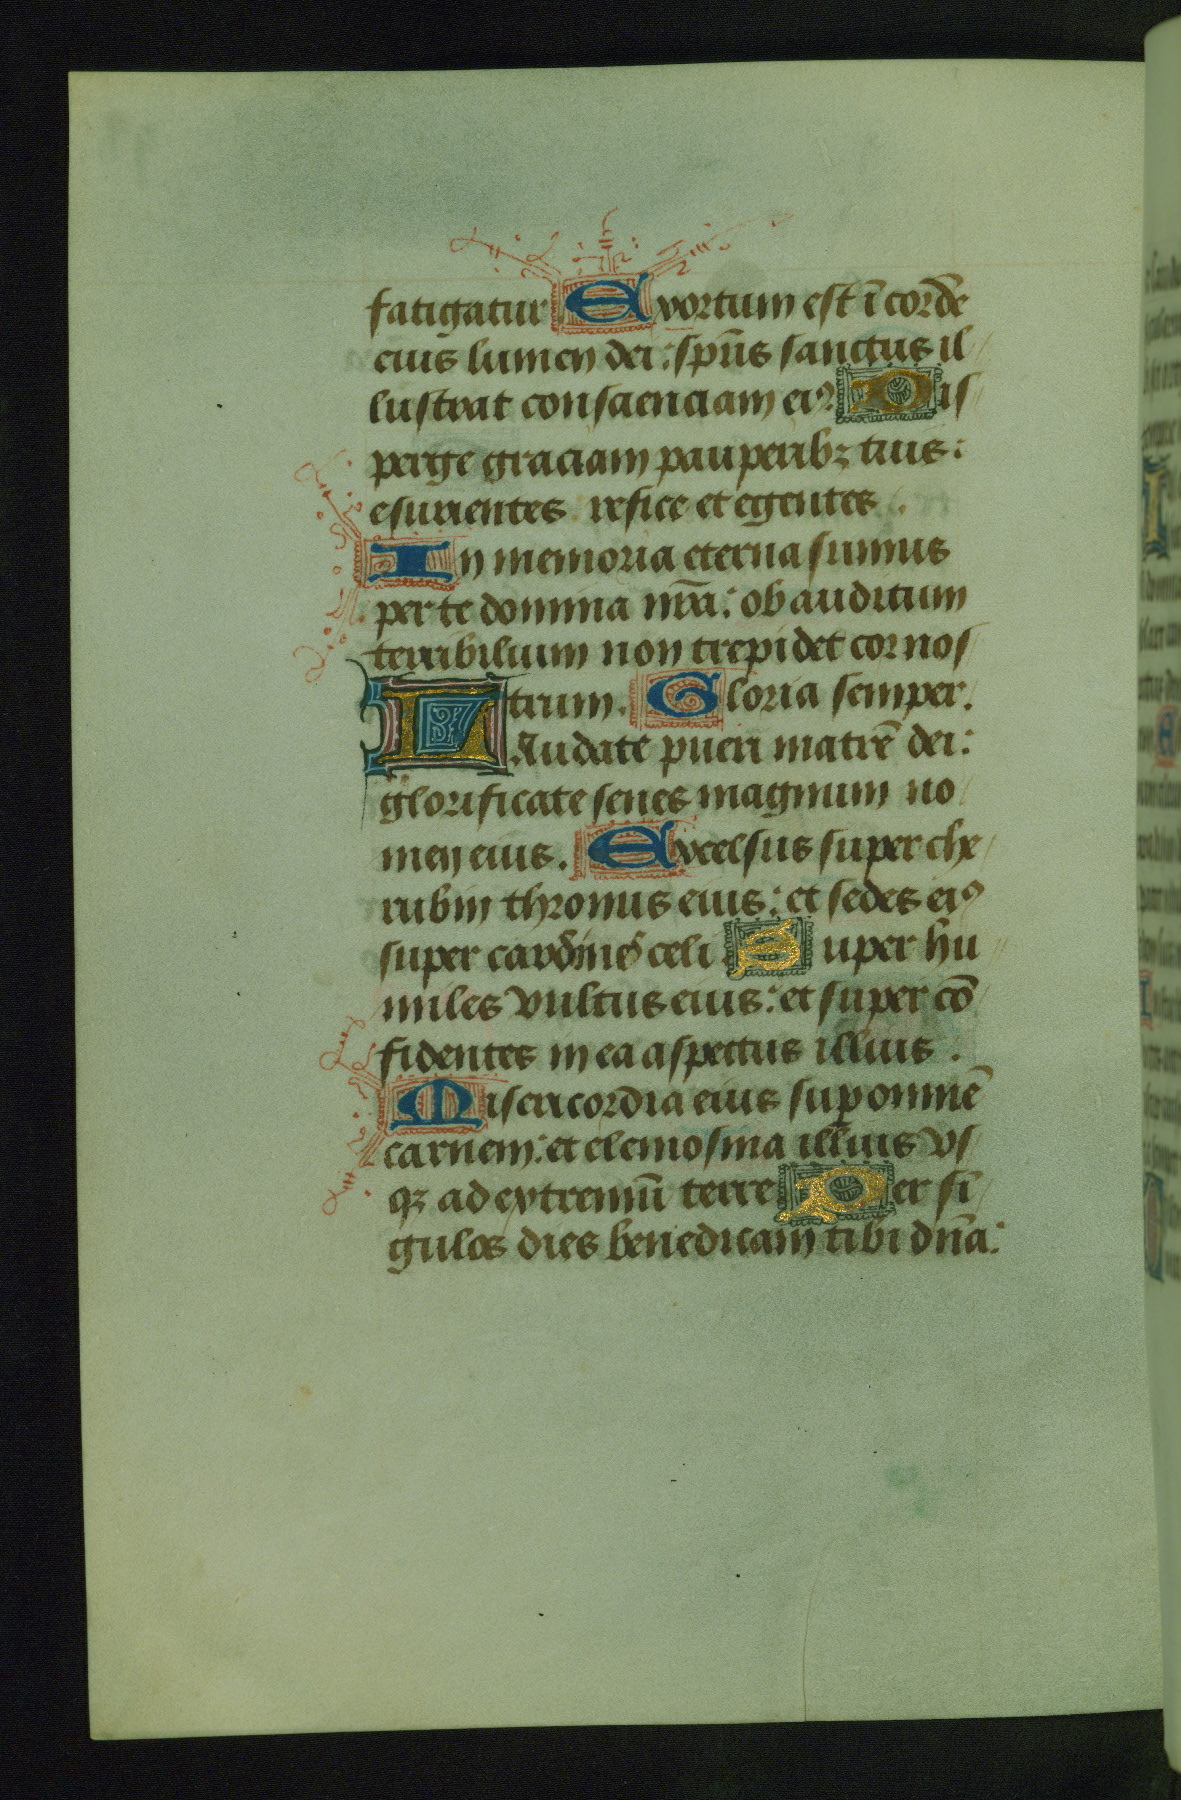 fatigatur Exortum est ī cordē
eius lumen dei: spūs sanctus il
lustrat conscienciam eiꝰ Dis
perge graciam pauperibꝫ tuis:
esurientes refice et egentes .
In memoria eterna sumus
per te domina mrā: ob auditum
terribilium non trepidet cor nos
trum. Gloria semper.
LAudate pueri matrē dei:
glorificate senes magnum no
men eius. Excelsus super che
rubin thronus eius: et sedes eiꝰ
super cardines celi Super hu
miles vultus eius: et super cō
fidentes in ea aspectus illius .
Misericordia eius suꝑ omnē
carnem: et elemosina illius vs
qꝫ ad extremū terre Per si
gulos dies benedicam tibi dn̄a: